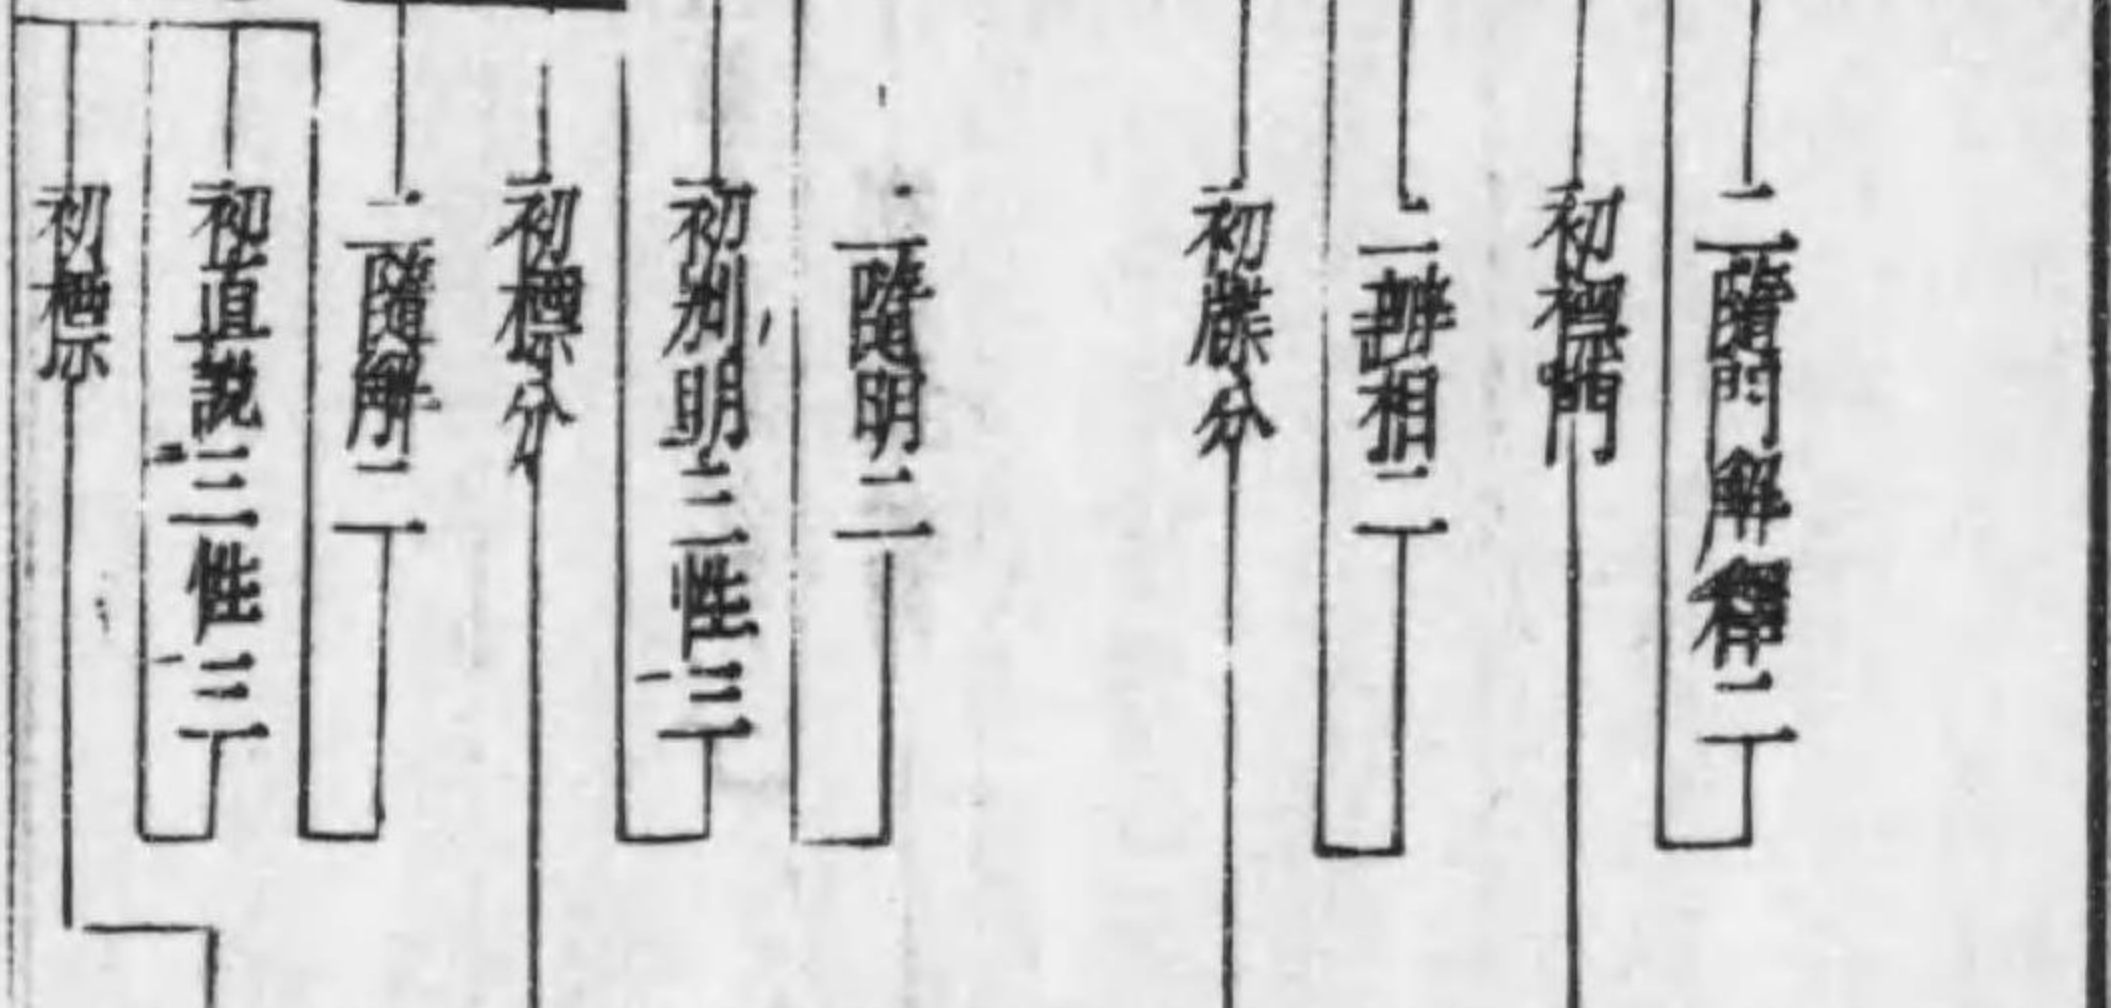 二隨門解釋二
初標門
二辨相二
初牒分
二隨明二
初別明三性三
初標分
二隨解二
初直說三性三
初標